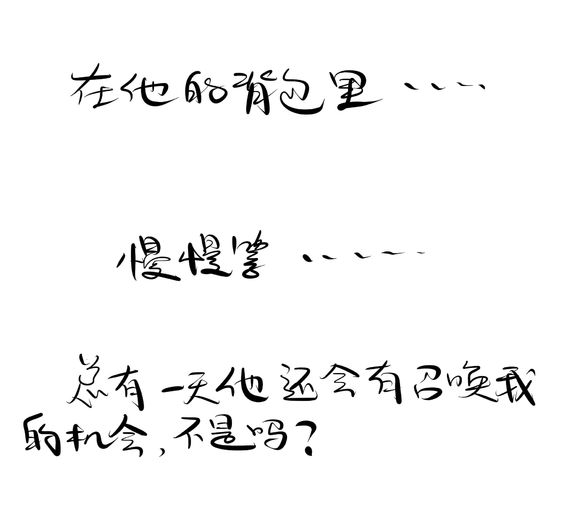 在他的背包里……
慢慢等……
总有一天他还会有召唤我
的机会,不是吗?